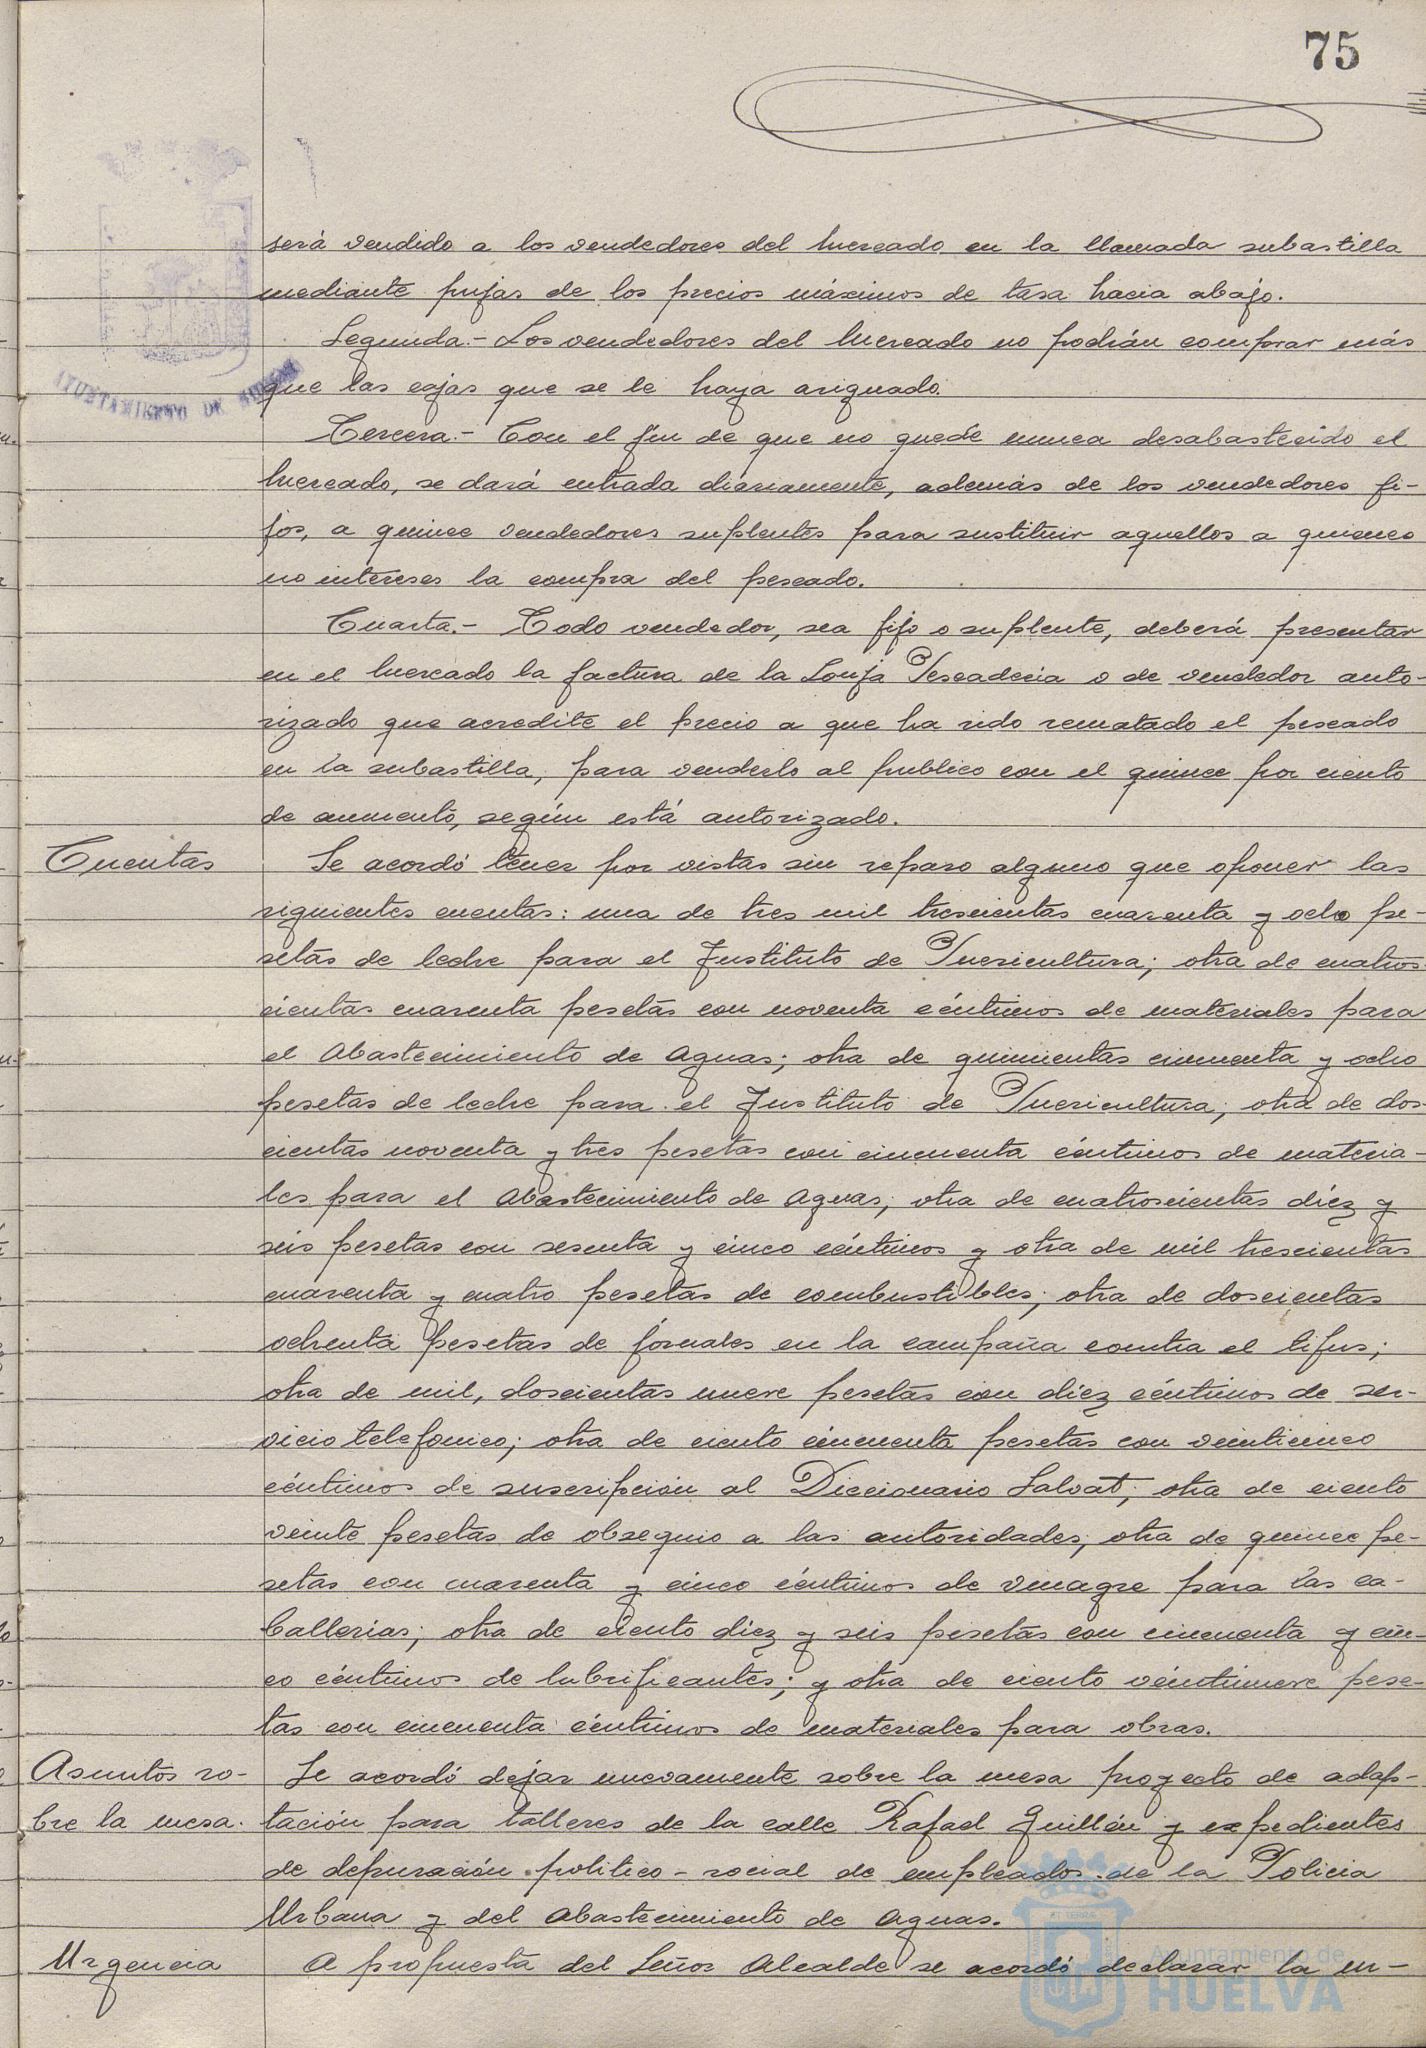 75
AYUNTAMIENTO DE HUELVA
será vendido a los vendedores del Mercado en la llamada subastilla
mediante pujas de los precios máximos de tasa hacia abajo.
Segunda.- Los vendedores del Mercado no podrán comprar más
que las cajas que se le haya asignado.
Tercera.- Con el fin de que no quede nunca desabastecido el
Mercado, se dará entrada diariamente, además de los vendedores fi-
jos, a quince vendedores suplentes para sustituir aquellos a quienes
no intereses la compra del pescado.
Cuarta.- Todo vendedor, sea fijo o suplente, deberá presentar
en el Mercado la factura de la Lonja Pescadería o de vendedor auto-
rizado que acredite el precio a que ha sido rematado el pescado
en la subastilla, para venderlo al publico con el quince por ciento
de aumento, según está autorizado.
Cuentas
Se acordó tener por vistas sin reparo alguno que oponer las
siguientes cuentas: una de tres mil trescientas cuarenta y ocho pe-
setas de leche para el Instituto de Puericultura; otra de cuatros-
cientas cuarenta pesetas con noventa céntimos de materiales para
el Abastecimiento de Aguas; otra de quinientas cincuenta y ocho
pesetas de leche para el Instituto de Puericultura; otra de dos-
cientas noventa y tres pesetas con cincuenta céntimos de materia-
les para el Abastecimiento de Aguas; otra de cuatroscientas diéz y
seis pesetas con sesenta y cinco céntimos y otra de mil trescientas
cuarenta y cuatro pesetas de combustibles; otra de doscientas
ochenta pesetas de jornales en la campaña contra el tifus;
otra de mil, doscientas nueve pesetas con diéz céntimos de ser-
vicio telefonico; otra de ciento cincuenta pesetas con veinticinco
céntimos de suscripción al Diccionario Salvat; otra de ciento
veinte pesetas de obsequio a las autoridades; otra de quince pe-
setas con cuarenta y cinco céntimos de vinagre para las ca-
ballerias; otra de ciento diéz y seis pesetas con cincuenta y cin-
co céntimos de lubrificantes; y otra de ciento veintinueve pese-
tas con cincuenta céntimos de materiales para obras.
Asuntos so-
bre la mesa.
Se acordó dejar nuevamente sobre la mesa proyecto de adap-
tación para talleres de la calle Rafael Guillén y expedientes
de depuración politico-social de empleados de la Policia
Urbana y del Abastecimiento de Aguas.
Urgencia
A propuesta del Señor Alcalde se acordó declarar la ur-
Ayuntamiento de
HUELVA